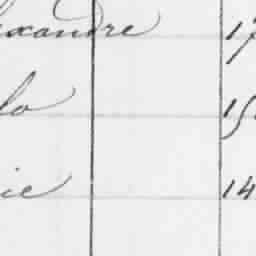 exandre 17
lo 15
ie 14